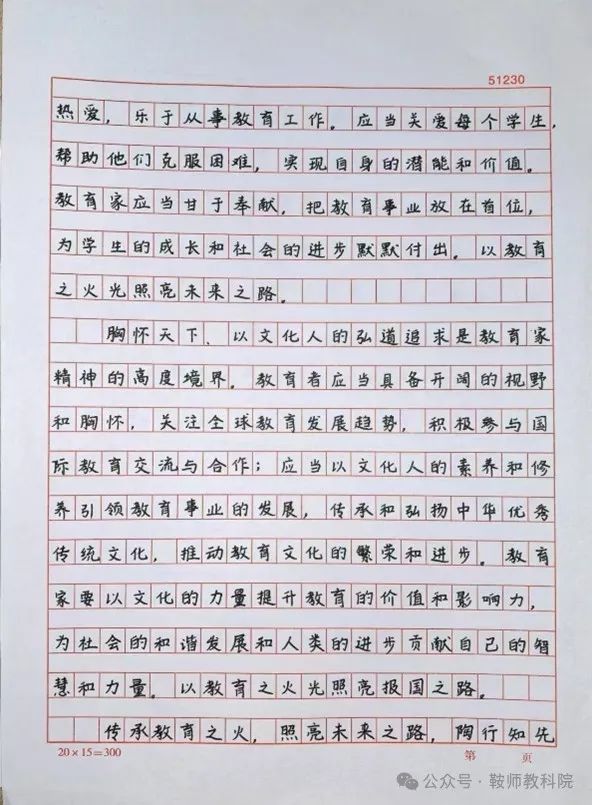 51230
热爱，乐于从事教育工作。应当关爱每个学生，
帮助他们克服困难，实现自身的潜能和价值。
教育家应当甘于奉献，把教育事业放在首位，
为学生的成长和社会的进步默默付出。以教育
之火光照亮未来之路。
胸怀天下、以文化人的弘道追求是教育家
精神的高度境界。教育者应当具备开阔的视野
和胸怀，关注全球教育发展趋势，积极参与国
际教育交流与合作；应当以文化人的素养和修
养引领教育事业的发展，传承和弘扬中华优秀
传统文化，推动教育文化的繁荣和进步。教育
家要以文化的力量提升教育的价值和影响力，
为社会的和谐发展和人类的进步贡献自己的智
慧和力量。以教育之火光照亮报国之路。
传承教育之火，照亮未来之路，陶行知先
20×15=300 第 页
公众号·鞍师教科院